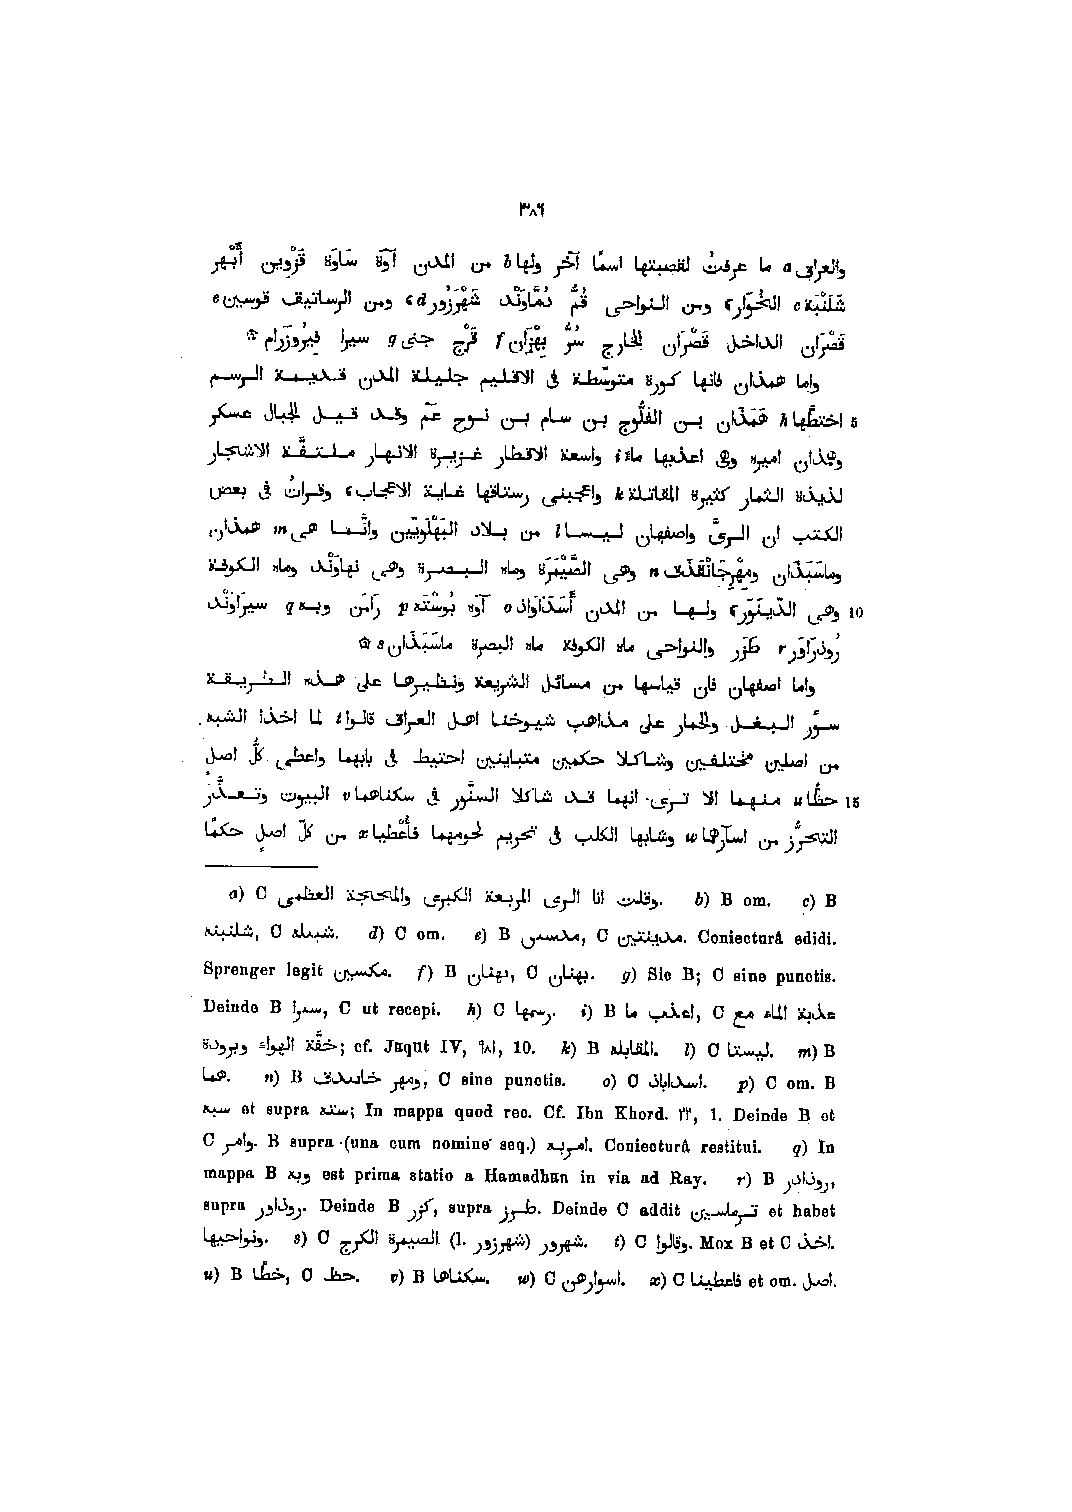 ٣٨٦
والعراق a ما عرفتُ لقصبتها اسمًا آخر ولها b من المدن آوَة سَاوَة قَزْوين أَبْهَر
شَلَنْبَة c الخُوَار، ومن النواحى قُمّ دُمَاوَنْد شَهْرَزُور d، ومن الرساتيق قوسين e
قَصْرَان الداخل قَصْرَان الخارج سُرّ بهْزَان f قَرْج جنى g سيرا فيرُوزَرَام ۞
واما همذان فانها كورة متوسّطة فى الاقليم جليلة المدن قديمة الرسم
5 اختطّها h هَمَذَان بن الفَلُّوج بن سام بن نوح عم وقد قيل الجبال عسكر
وهمذان اميره وفى اعذبها ماءً i واسعة الاقطار غزيرة الانهار ملتفّة الاشجار
لذيذة الثمار كثيرة المقاتلة k واعجبنى رستاقها غاية الاعجاب، وقراتُ فى بعض
الكتب ان الرىّ واصفهان ليسا l من بلاد البَهْلَويّين وانّما هى m همذان
وماسَبَذان ومِهْرجَانْقَذَف n وهى الصَّيْمَرَة وماه البصرة وهى نهاوَنْد وماه الكوفة
10 وهى الدِّينَوَر، ولها من المدن أَسَدَاواذ o آوَه بُوسْتَه p رامَن وبه q سيرَاوَنْد
رُوذرَاوَر r طَزَر والنواحى ماه الكوفة ماه البصرة ماسَبَذان s ۞
واما اصفهان فان قياسها من مسائل الشريعة ونظيرها على هذه الطريقة
سؤر البغل والحمار على مذاهب شيوخنا اهل العراق قالوا t لما اخذا الشبه
من اصلين مختلفين وشاكلا حكمين متباينين احتيط فى بابهما واعطى كلّ اصل
15 حظًّا u منهما الا ترى انهما قد شاكلا السنّور فى سكناهما v البيوت وتعذُّر
التحرُّز من اسآرهما w وشابها الكلب فى تحريم لحومهما فأعطيا x من كلّ اصل حكمًا
a) C وقلت انا الرى المربعة الكبرى والمحجة العظمى. b) B om. c) B
شلنبنه, C شبله. d) C om. e) B مدسى, C مدينتين. Coniecturâ edidi.
Sprenger legit مكسين. f) B بهنان, C بهنان. g) Sic B; C sine punctis.
Deinde B سرا, C ut recepi. h) C رسمها. i) B اعذب ما, C عذبة الماء مع
خفّة الهواء وبرودة; cf. Jaqut IV, ٩٨١, 10. k) B المقابله. l) C ليستا. m) B
هما. n) B ومهر حاسدف, C sine punctis. o) C اسداباذ. p) C om. B
سبه et supra سته; In mappa quod rec. Cf. Ibn Khord. ٢٣, 1. Deinde B et
C وامر. B supra (una cum nomine seq.) امربه. Coniecturâ restitui. q) In
mappa B وبه est prima statio a Hamadhân in via ad Ray. r) B روذادر,
supra روذاور. Deinde B كزر, supra طرز. Deinde C addit قرماسين et habet
ونواحيها. s) C الصيمرة الكرج (l. شهرزور) شهرور. t) C وقالوا. Mox B et C اخذ.
u) B خطًا, C حظ. v) B سكناها. w) C اسوارهن. x) C فاعطينا et om. اصل.